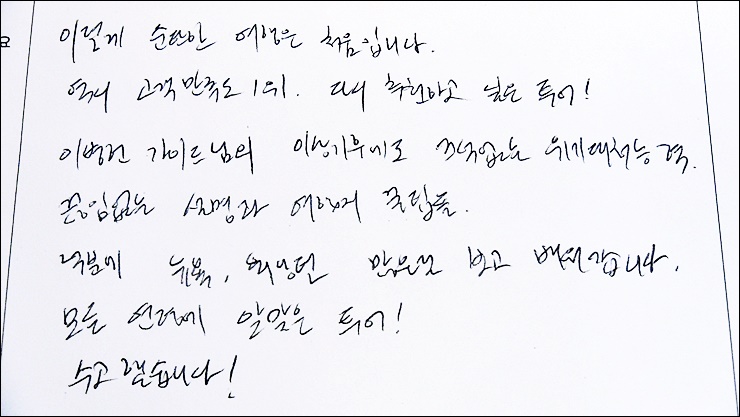 이렇게 순탄한 여행은 처음입니다.
역시 고객만족도 1위. 다시 추천하고 싶은 투어!
이병헌 가이드님의 이상기후에도 끄덕없는 위기대처능력.
끊임없는 설명과 여행지 꿀팁들.
덕분에 뉴욕, 워싱턴 많은걸 보고 배워갑니다.
모든 연령에 알맞은 투어!
수고했습니다!
요